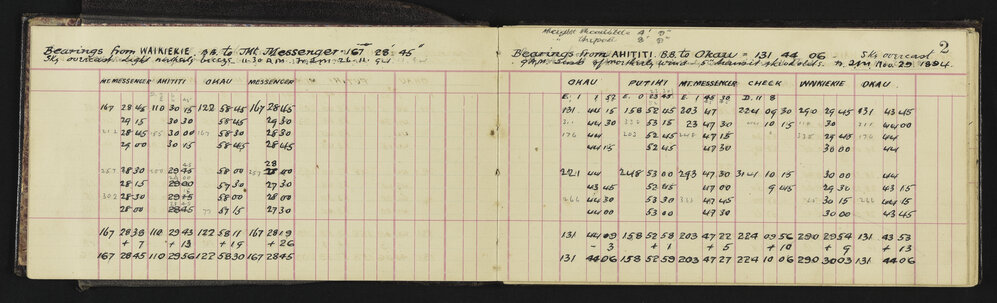 Bearings from WAIKIEKIE. B.B. to Mt Messenger 167° 28' 45"
Sky overcast Light northerly breeze 11.30 A.M.
MT MESSENGER AHITITI OKAU MESSENGER
167 28 45 110 30 15 122 58 45 167 28 45
29 15 30 30 58 45 29 30
28 45 30 00 58 30 28 45
29 00 30 15 58 45 28 45
257 28 30 29 45 58 00 257 28 00
28 15 29 00 57 30 27 30
302 28 30 29 15 58 00 28 00
28 00 28 45 57 15 27 30
167 28 38 110 29 43 122 58 11 167 28 19
+ 7 + 13 + 19 + 26
167 28 45 110 29 56 122 58 30 167 28 45
2
Height Theodolite 4' 0"
" Tripod 8' 0"
Bearings from AHITITI B.B. to Okau = 131 44 06 Sky overcast
Nov. 29. 1894.
OKAU PUTIHI MT. MESSENGER CHECK WAIKIEKIE OKAU
131 44 15 158 52 45 203 47 224 09 30 290 29 45 131 43 45
44 30 53 15 23 47 30 10 15 30 44 00
176 44 203 52 45 248 47 15 335 29 45 176 44
44 15 52 45 47 30 30 00 44
221 44 248 53 00 293 47 30 314 10 15 30 00 44
43 45 52 45 47 00 9 45 29 30 43 15
266 44 53 30 47 45 30 15 266 44
44 00 53 00 47 00 30 00 43 45
131 44 09 158 52 58 203 47 22 224 09 56 290 29 54 131 43 53
- 3 + 1 + 5 + 10 + 9 + 13
131 44 06 158 52 59 203 47 27 224 10 06 290 30 03 131 44 06